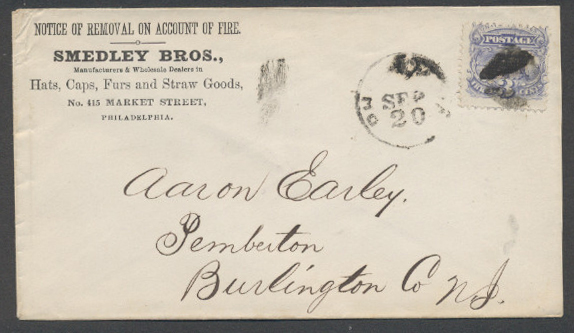 NOTICE OF REMOVAL ON ACCOUNT OF FIRE.
SMEDLEY BROS.,
Manufacturers & Wholesale Dealers in
Hats, Caps, Furs and Straw Goods,
No. 415 MARKET STREET,
PHILADELPHIA.
POSTAGE
SEP
20
Aaron Earley.
Pemberton
Burlington Co N.J.